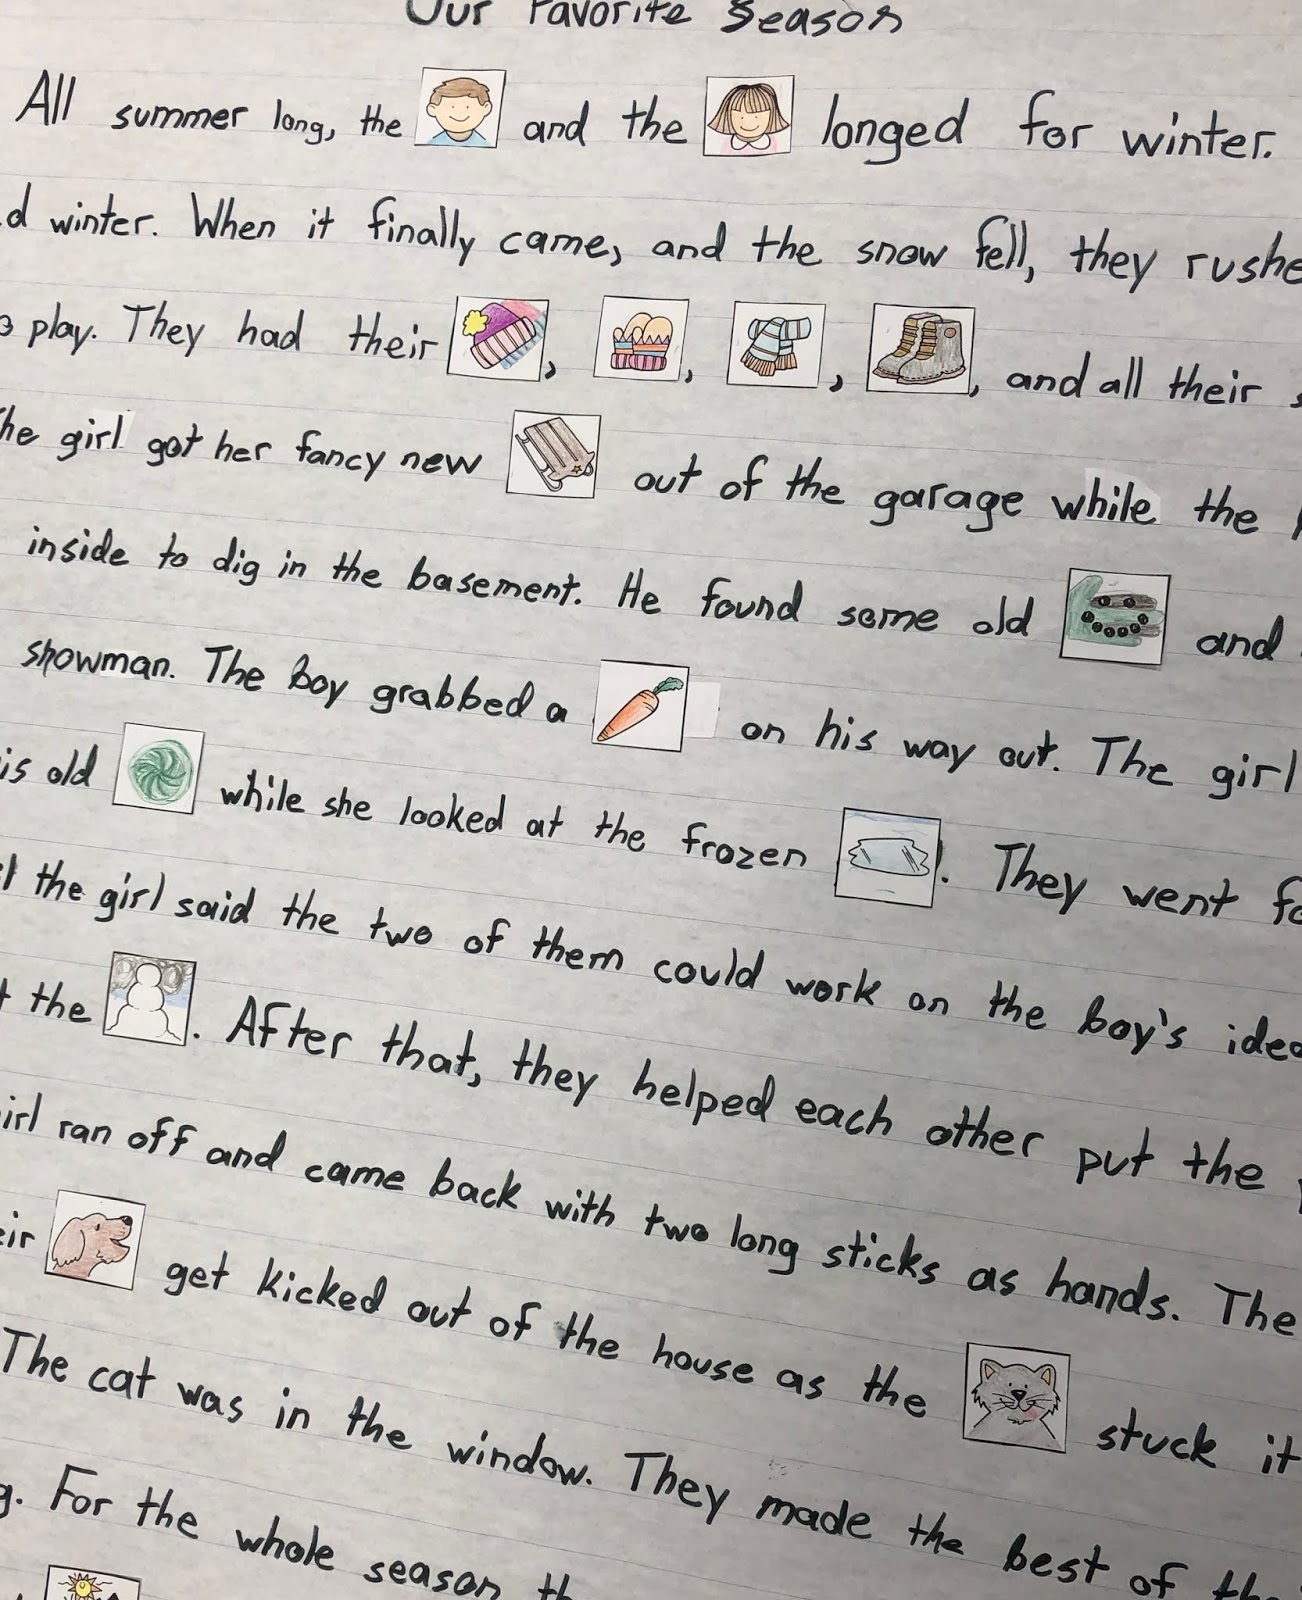 Our Favorite Season
All summer long, the and the longed for winter.
winter. When it finally came, and the snow fell, they
play. They had their , , , , and all their
girl got her fancy new out of the garage while the
inside to dig in the basement. He found some old and
snowman. The boy grabbed a on his way out. The girl
old while she looked at the frozen . They went
the girl said the two of them could work on the boy's
the . After that, they helped each other put the
ran off and came back with two long sticks as hands. The
get kicked out of the house as the stuck it
The cat was in the window. They made the best of
For the whole season